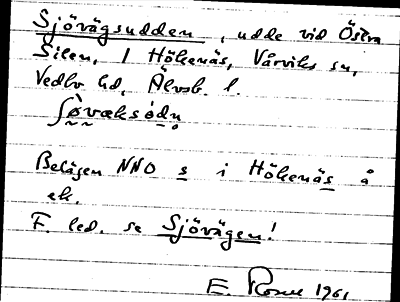 Sjövägsudden, udde vid Östra
Silen, 1 Hökenäs, Vårviks sn,
Vedbo hd, Älvsb. l.
ʃø̀væksódn̥
Belägen NNO s i Hökenäs å
ek.
F. led. se Sjövägen!
E. Rosell 1961